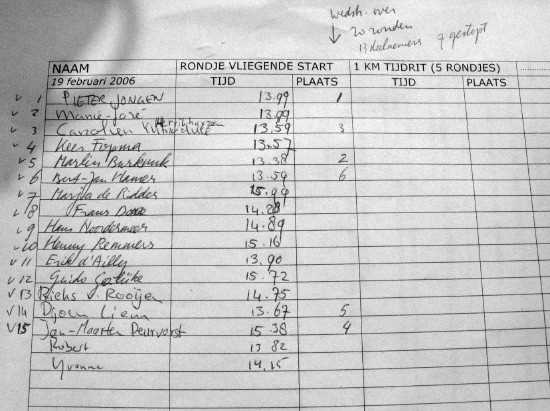 wedstr. over
20 ronden
13 deelnemers 7 gestopt
NAAM RONDJE VLIEGENDE START 1 KM TIJDRIT (5 RONDJES)
19 februari 2006 TIJD PLAATS TIJD PLAATS
v 1 PIETER JONGEN 13.99 1
v 2 Marie-José 13.99
v 3 Carolien 13.59 3
v 4 Kees Fopma 13.57
v 5 Martin 13.38 2
v 6 Bert-Jan Hamer 13.54 6
v 7 Marijke de Ridder 15.99
v 8 Frans 14.28
v 9 Hans Noordermeer 14.89
v 10 Henny Remmers 15.16
v 11 Erik d'Ailly 13.90
v 12 Guido 15.72
v 13 Rieks v. Rooijen 14.75
v 14 Djoen Liem 13.67 5
v 15 Jan-Maarten Deurvorst 15.38 4
Robert 13 82
Yvonne 14.15